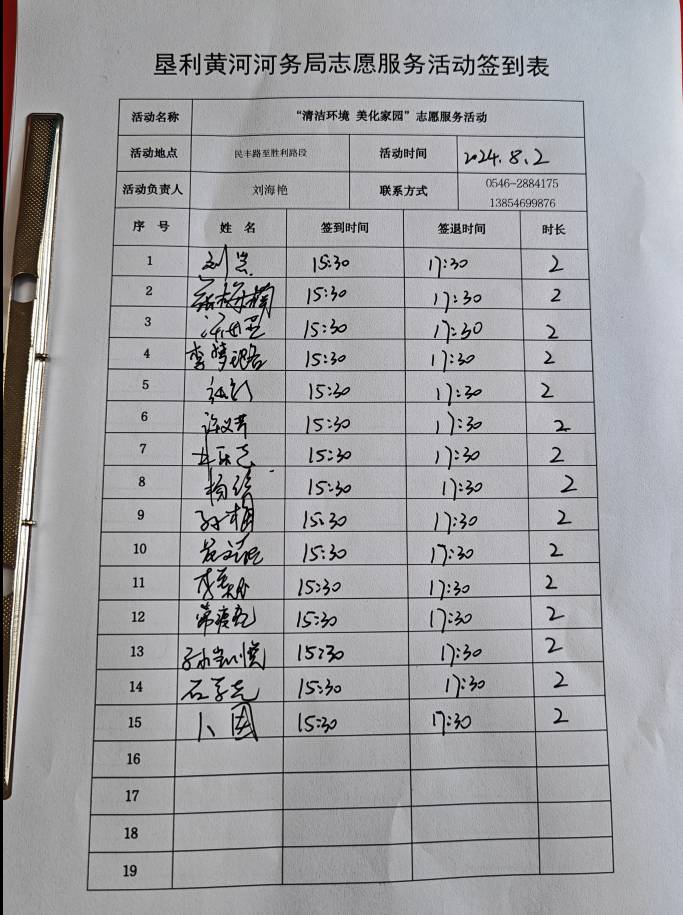 垦利黄河河务局志愿服务活动签到表
活动名称 “清洁环境 美化家园”志愿服务活动
活动地点 民丰路至胜利路段 活动时间 2024.8.2
活动负责人 刘海艳 联系方式 0546-2884175
13854699876
序 号 姓 名 签到时间 签退时间 时长
1 15:30 17:30 2
2 15:30 17:30 2
3 15:30 17:30 2
4 15:30 17:30 2
5 15:30 17:30 2
6 15:30 17:30 2
7 15:30 17:30 2
8 15:30 17:30 2
9 孙梅 15:30 17:30 2
10 15:30 17:30 2
11 15:30 17:30 2
12 15:30 17:30 2
13 15:30 17:30 2
14 15:30 17:30 2
15 卜国 15:30 17:30 2
16
17
18
19